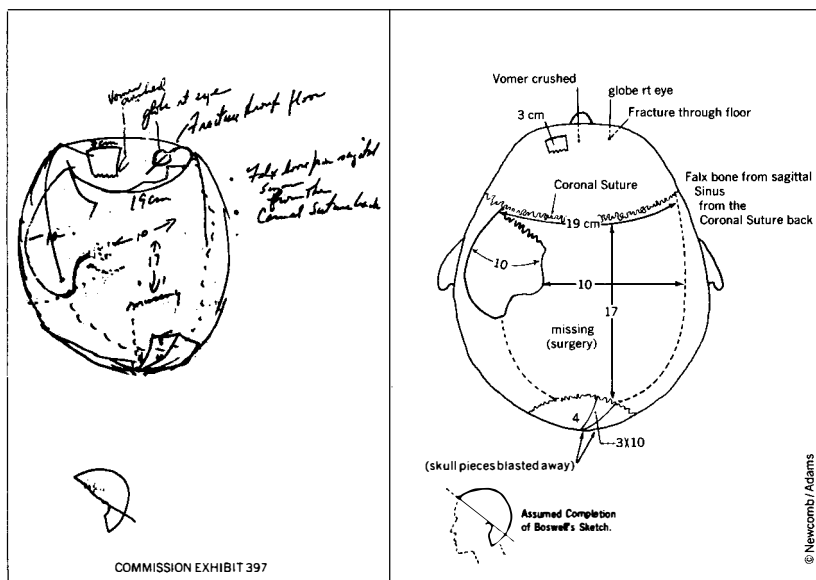 Vomer
crushed
globe rt eye
Fracture through floor
3cm
19cm
Falx bone from sagittal
from the
Coronal Suture back
10
10
17
missing
COMMISSION EXHIBIT 397
Vomer crushed
globe rt eye
3 cm
Fracture through floor
Coronal Suture
Falx bone from sagittal
Sinus
from the
Coronal Suture back
19 cm
10
10
17
missing
(surgery)
4
3X10
(skull pieces blasted away)
Assumed Completion
of Boswell's Sketch.
© Newcomb/Adams